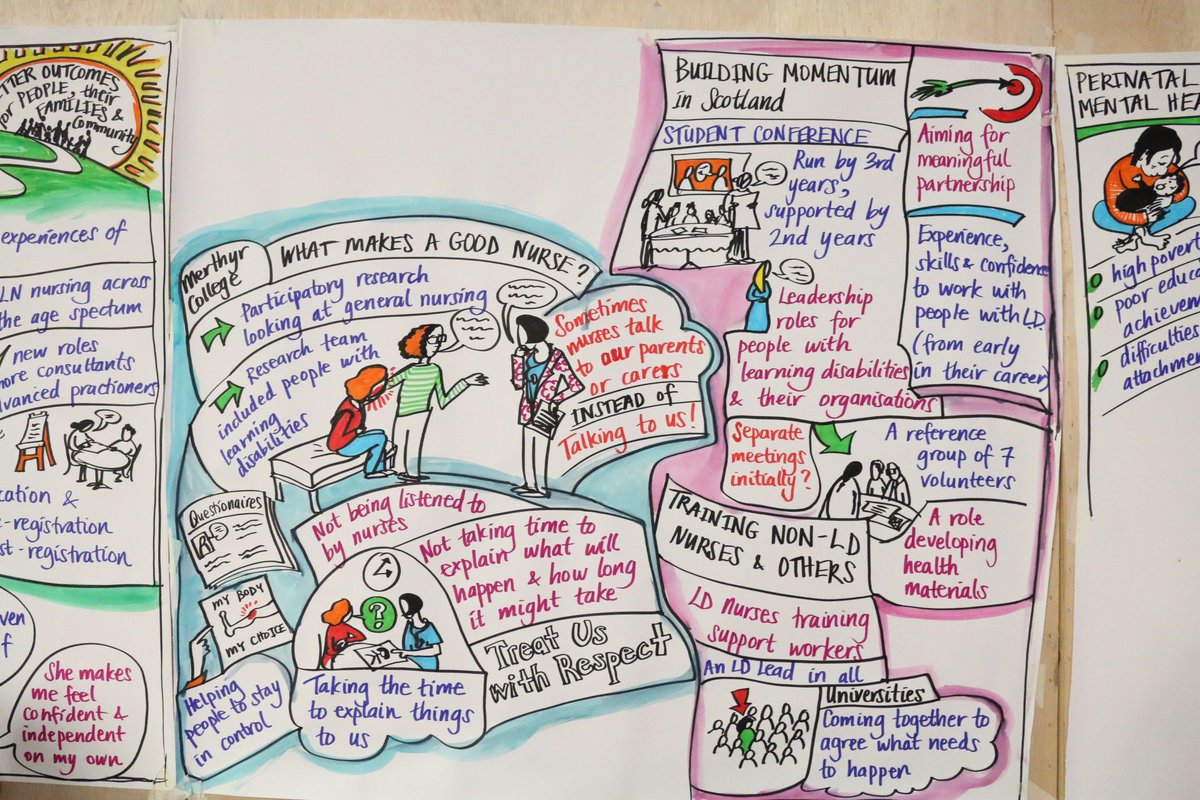 TTER OUTCOMES
for PEOPLE, their
FAMILIES &
Community
experiences of
LN nursing across
the age spectrum
new roles
more consultants
dvanced practioners
cation &
e-registration
st-registration
ven
f
She makes
me feel
confident &
independent
on my own
Merthyr
College
WHAT MAKES A GOOD NURSE?
Participatory research
looking at general nursing
Research team
included people with
learning
disabilities
Sometimes
nurses talk
to our parents
or carers
INSTEAD OF
Talking to us!
Questionaires
MY BODY
MY CHOICE
Helping
people to stay
in control
Not being listened to
by nurses
Not taking time to
explain what will
happen & how long
it might take
?
Taking the time
to explain things
to us
Treat Us
with Respect
BUILDING MOMENTUM
in Scotland
STUDENT CONFERENCE
Run by 3rd
years,
supported by
2nd years
Leadership
roles for
people with
learning disabilities
& their organisations
Aiming for
meaningful
partnership
Experience,
skills & confidence
to work with
people with LD.
(from early
in their career)
Separate
meetings
initially?
A reference
group of 7
volunteers
A role
developing
health
materials
TRAINING NON-LD
NURSES & OTHERS
LD Nurses training
support workers
An LD Lead in all
Universities
Coming together to
agree what needs
to happen
PERINATAL
MENTAL HEA
high povert
poor educ
achievemen
difficulties
attachmen